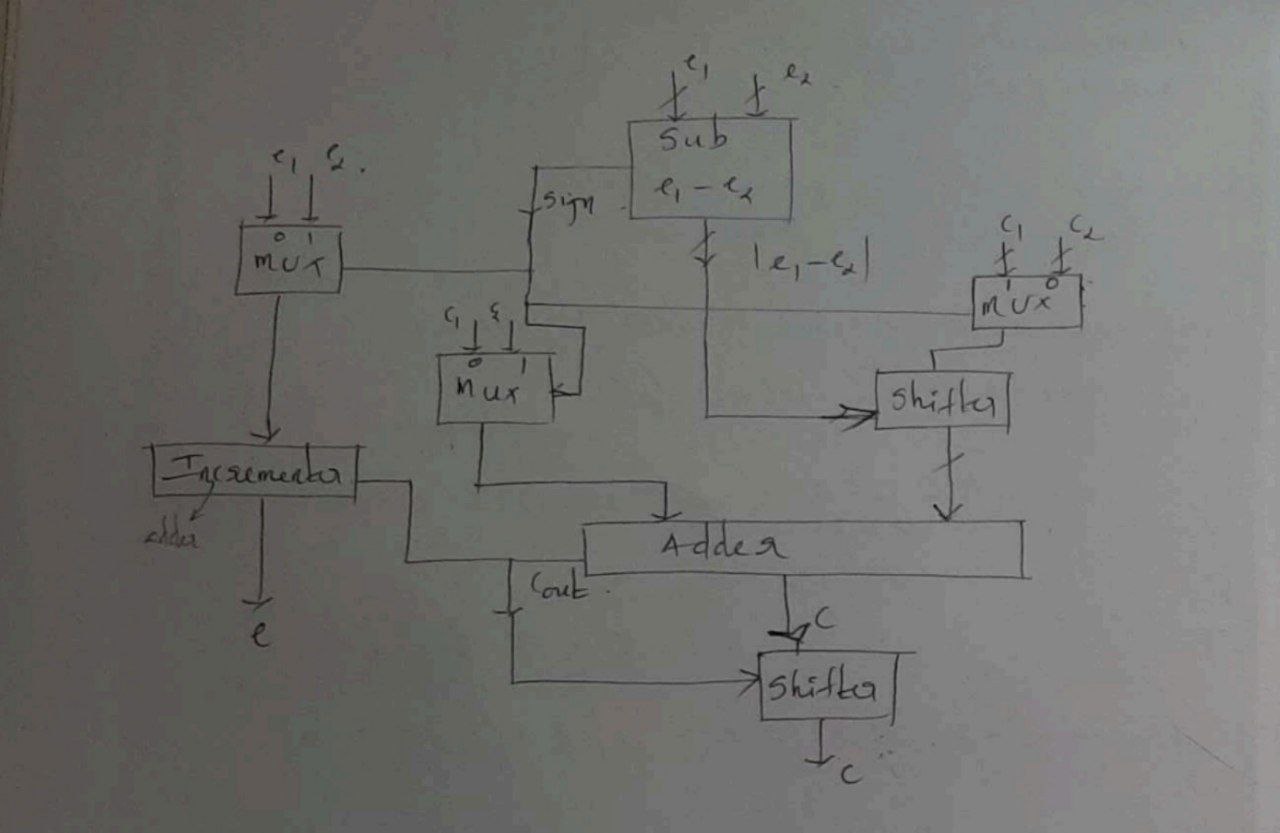 e₁ e₂
Sub
e₁ - e₂
e₁ e₂
sign
0 1
mux
|e₁ - e₂|
C₁ C₂
1 0
mux
C₁ C₂
0 1
mux
shifter
Incrementer
adder
Adder
Cout
e
C
shifter
C